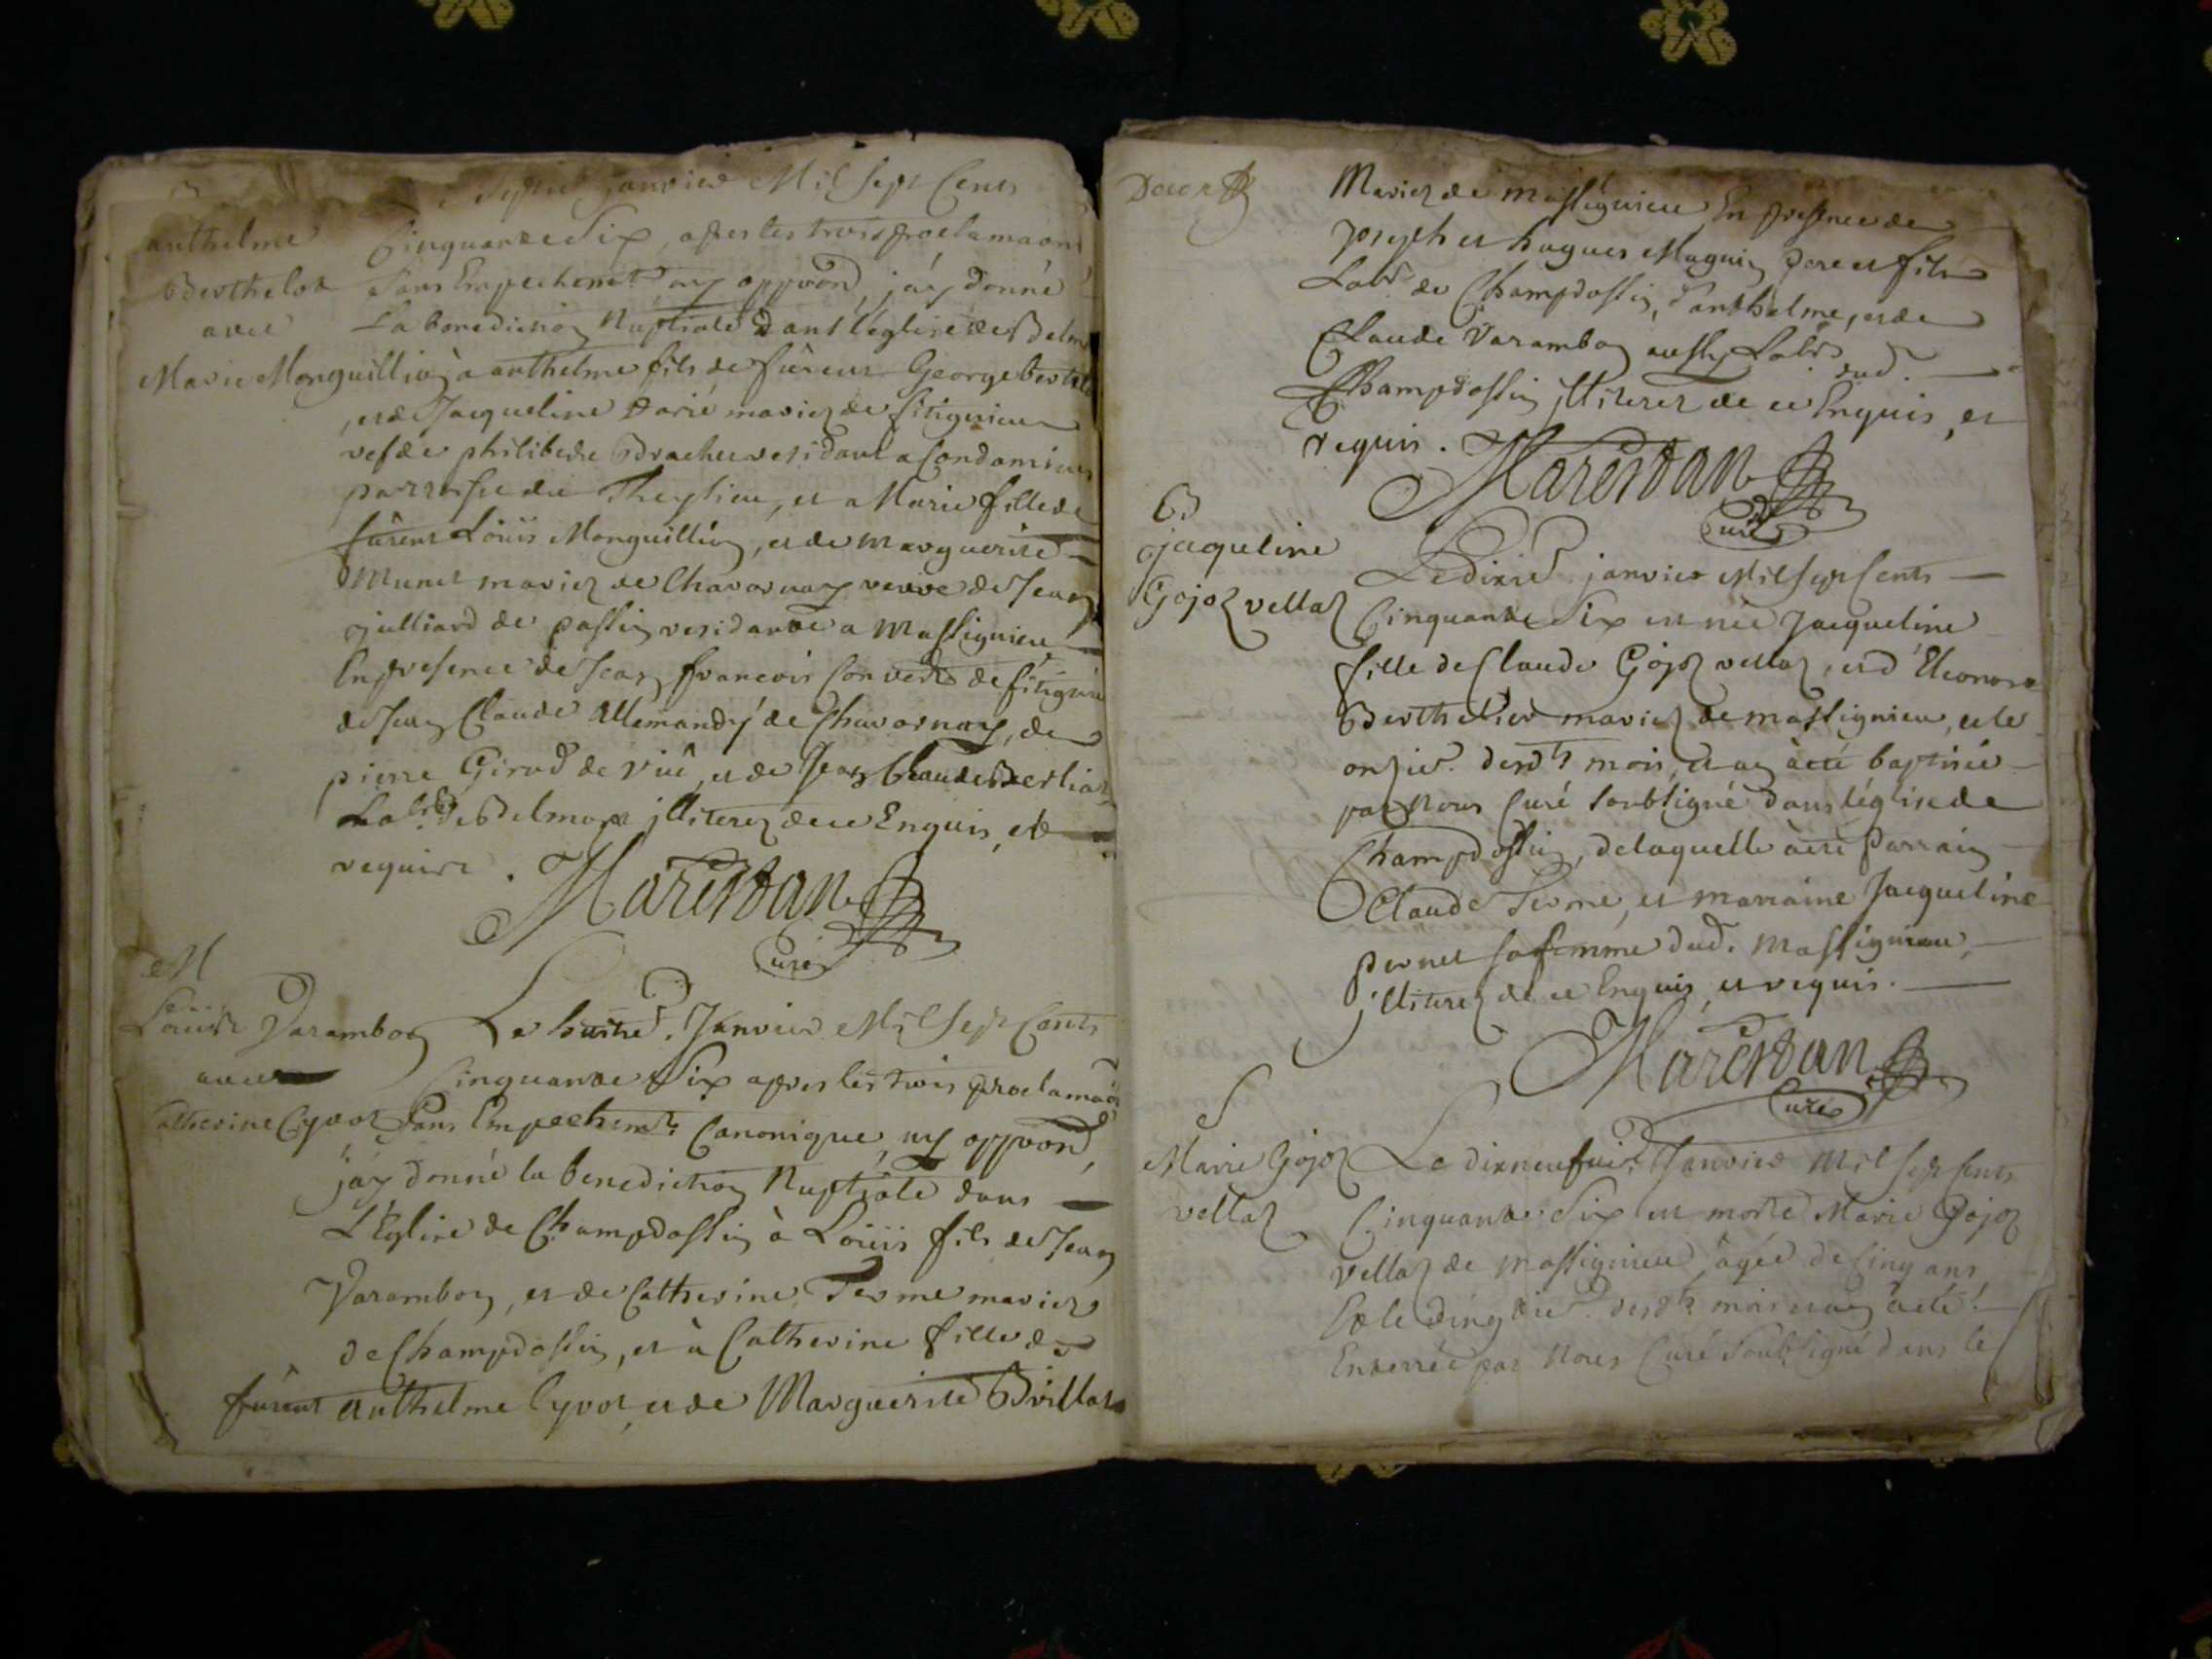 janvier Mil Sept Cents
anthelme
Berthelot
avec
Marie Monguillion
Cinquante Six, apres les trois proclamaons
Sans Empechemt. ny oppoon, j'ay donné
La benediction Nuptiale dans l'églize de Belm
a anthelme fils de fûrent George bertel
, et de Jacqueline Darié mariez de sitignieu
vef de philiberte Brachet residant a Condamines
parroisse de Theylieu, et a Marie fille de
fûrent Loüis Monguillion, et de Marguerite
Munet mariez de Chavornay veuve de Jean
julliard de passin residante a Massignieu
En presence de Jean françois Convert de sitignieu
de Jean Claude Allemand de Chavornay, de
pierre Girod de viû, et de Jean Claude Berliat
Labrs. de Belmont jlliterez de ce Enquis, et
requis.
Marestan
Curé
M
Loüis Varambon
avec
Catherine Cyvot
Le huitie. Janvier Mil Sept Cents
Cinquante Six apres les trois proclamaos
Sans Empechemt. Canonique, ny oppoon,
j'ay donné la benediction Nuptiale dans
L'Eglize de Champdossin à Loüis fils de Jean
Varambon, et de Catherine Terme mariez
de Champdossin, et à Catherine fille de
fûrent Anthelme Cyvot, et de Marguerite Brillat
Mariez de massignieu En presence de
joseph et hugues Magnin pere et fils
Labrs de Champdossin, d'anthelme, et de
Claude Varambon aussy Labrs. dud.
Champdossin jlliterez de ce Enquis, et
requis.
Marestan
Curé
B
jaqueline
Gojoz vellaz
Le dixie. janvier Mil Sept Cents
Cinquante Six est née Jacqueline
fille de Claude Gojoz vellaz, et d'Eleonore
Berthelier mariez de massignieu, et le
onzie. desdts mois, et an à été baptisée
par Nous Curé Soubsigné dans l'églize de
Champdossin, de laquelle à été Parrain
Claude Terme, et marraine Jacqueline
pernet sa femme dud. Massignieu,
jlliterez de ce Enquis, et requis.
Marestan
Curé
S
Marie Gojoz
vellaz
Le dixneufvie. Janvier Mil Sept Cents
Cinquante Six est morte Marie Gojoz
vellaz de Massignieu âgée de Cinq ans,
Et le vingtie. desdts mois et an à été
Enterrée par Nous Curé Soubsigné dans le